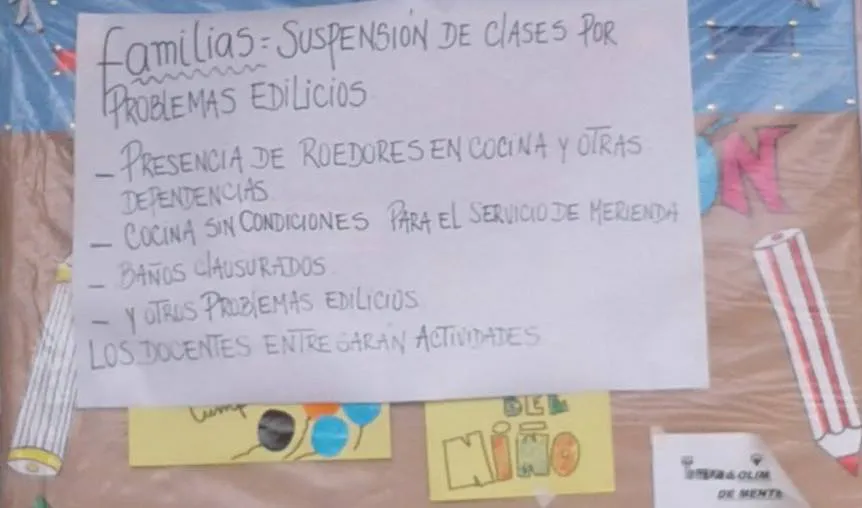 Familias: SUSPENSIÓN DE CLASES POR
PROBLEMAS EDILICIOS
- PRESENCIA DE ROEDORES EN COCINA Y OTRAS
DEPENDENCIAS
- COCINA SIN CONDICIONES PARA EL SERVICIO DE MERIENDA
- BAÑOS CLAUSURADOS
- Y OTROS PROBLEMAS EDILICIOS
LOS DOCENTES ENTREGARÁN ACTIVIDADES
ÓN
DEL
NIÑO
DE MENTE